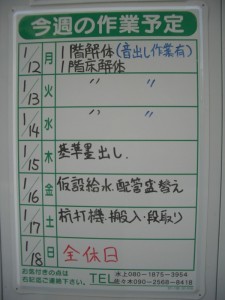 今週の作業予定
1/12 月 1階解体(音出し作業有)
1階床解体
1/13 火 〃 〃
1/14 水 〃 〃
1/15 木 基準墨出し.
1/16 金 仮設給水.配管盛替え
1/17 土 杭打機搬入・段取り
1/18 日 全休日
お気付きの点は
右記迄ご連絡下さい。
TEL 水上 080-1875-3954
佐々木 090-2566-8418